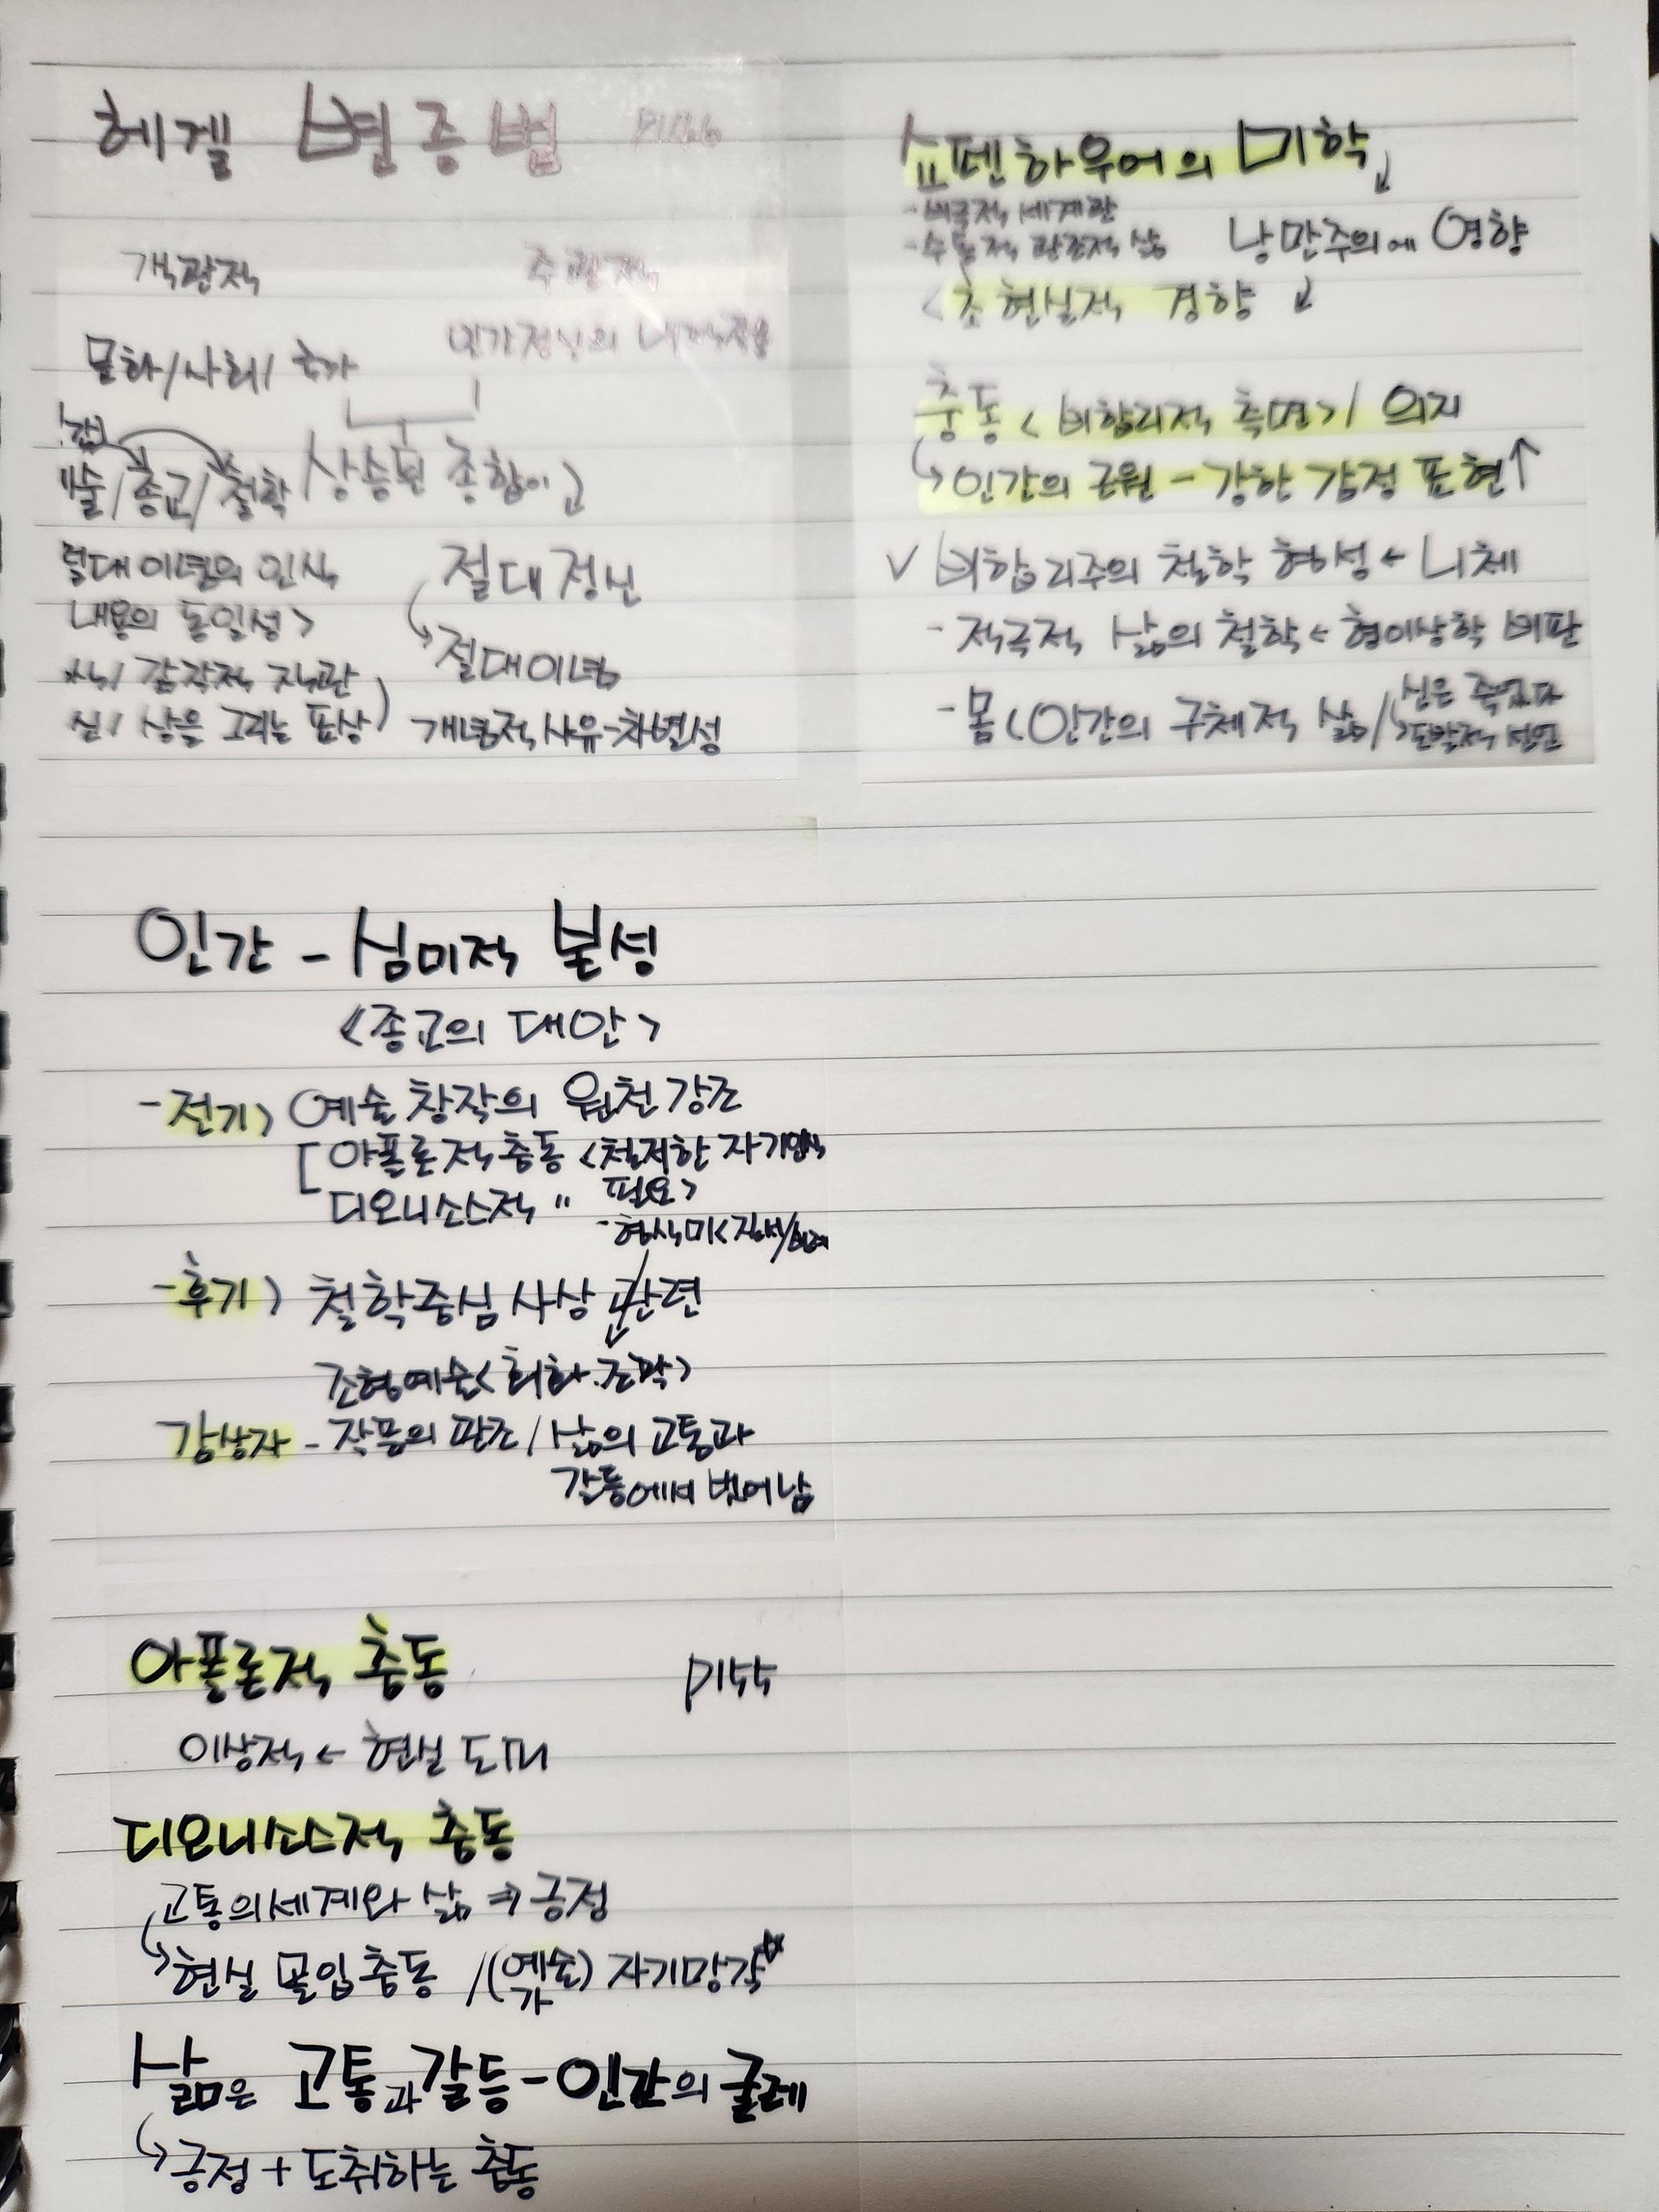 헤겔 변증법
객관적 주관적
인간정신의 내적작용
문화/사회/국가
술/종교/철학 상승된 종합이고
절대이념의 인식 절대정신
내용의 동일성>
절대이념
감각적 직관
상을 그리는 표상) 개념적 사유-차별성
쇼펜하우어의 미학
- 비극적 세계관
- 수동적 관조적 삶 낭만주의에 영향
<초현실적 경향
충동<비합리적 측면>/의지
인간의 근원 - 강한 감정 표현↑
√ 비합리주의 철학 형성 ← 니체
- 적극적 삶의 철학 ← 형이상학 비판
- 몸<인간의 구체적 삶/ 신은 죽었다
도발적 선언
인간 - 심미적 본성
<종교의 대안>
- 전기) 예술 창작의 원천 강조
아폴론적 충동 <철저한 자기인식
디오니소스적 〃 필요>
- 형식미<질서/비례
- 후기) 철학중심 사상 관련
조형예술<회화.조각>
감상자 - 작품의 관조/삶의 고통과
갈등에서 벗어남
아폴론적 충동 P155
이상적 ← 현실 도피
디오니소스적 충동
고통의 세계와 삶 ⇒ 긍정
현실 몰입 충동 /(예술가) 자기망각☆
삶은 고통과 갈등 - 인간의 굴레
긍정 + 도취하는 충동